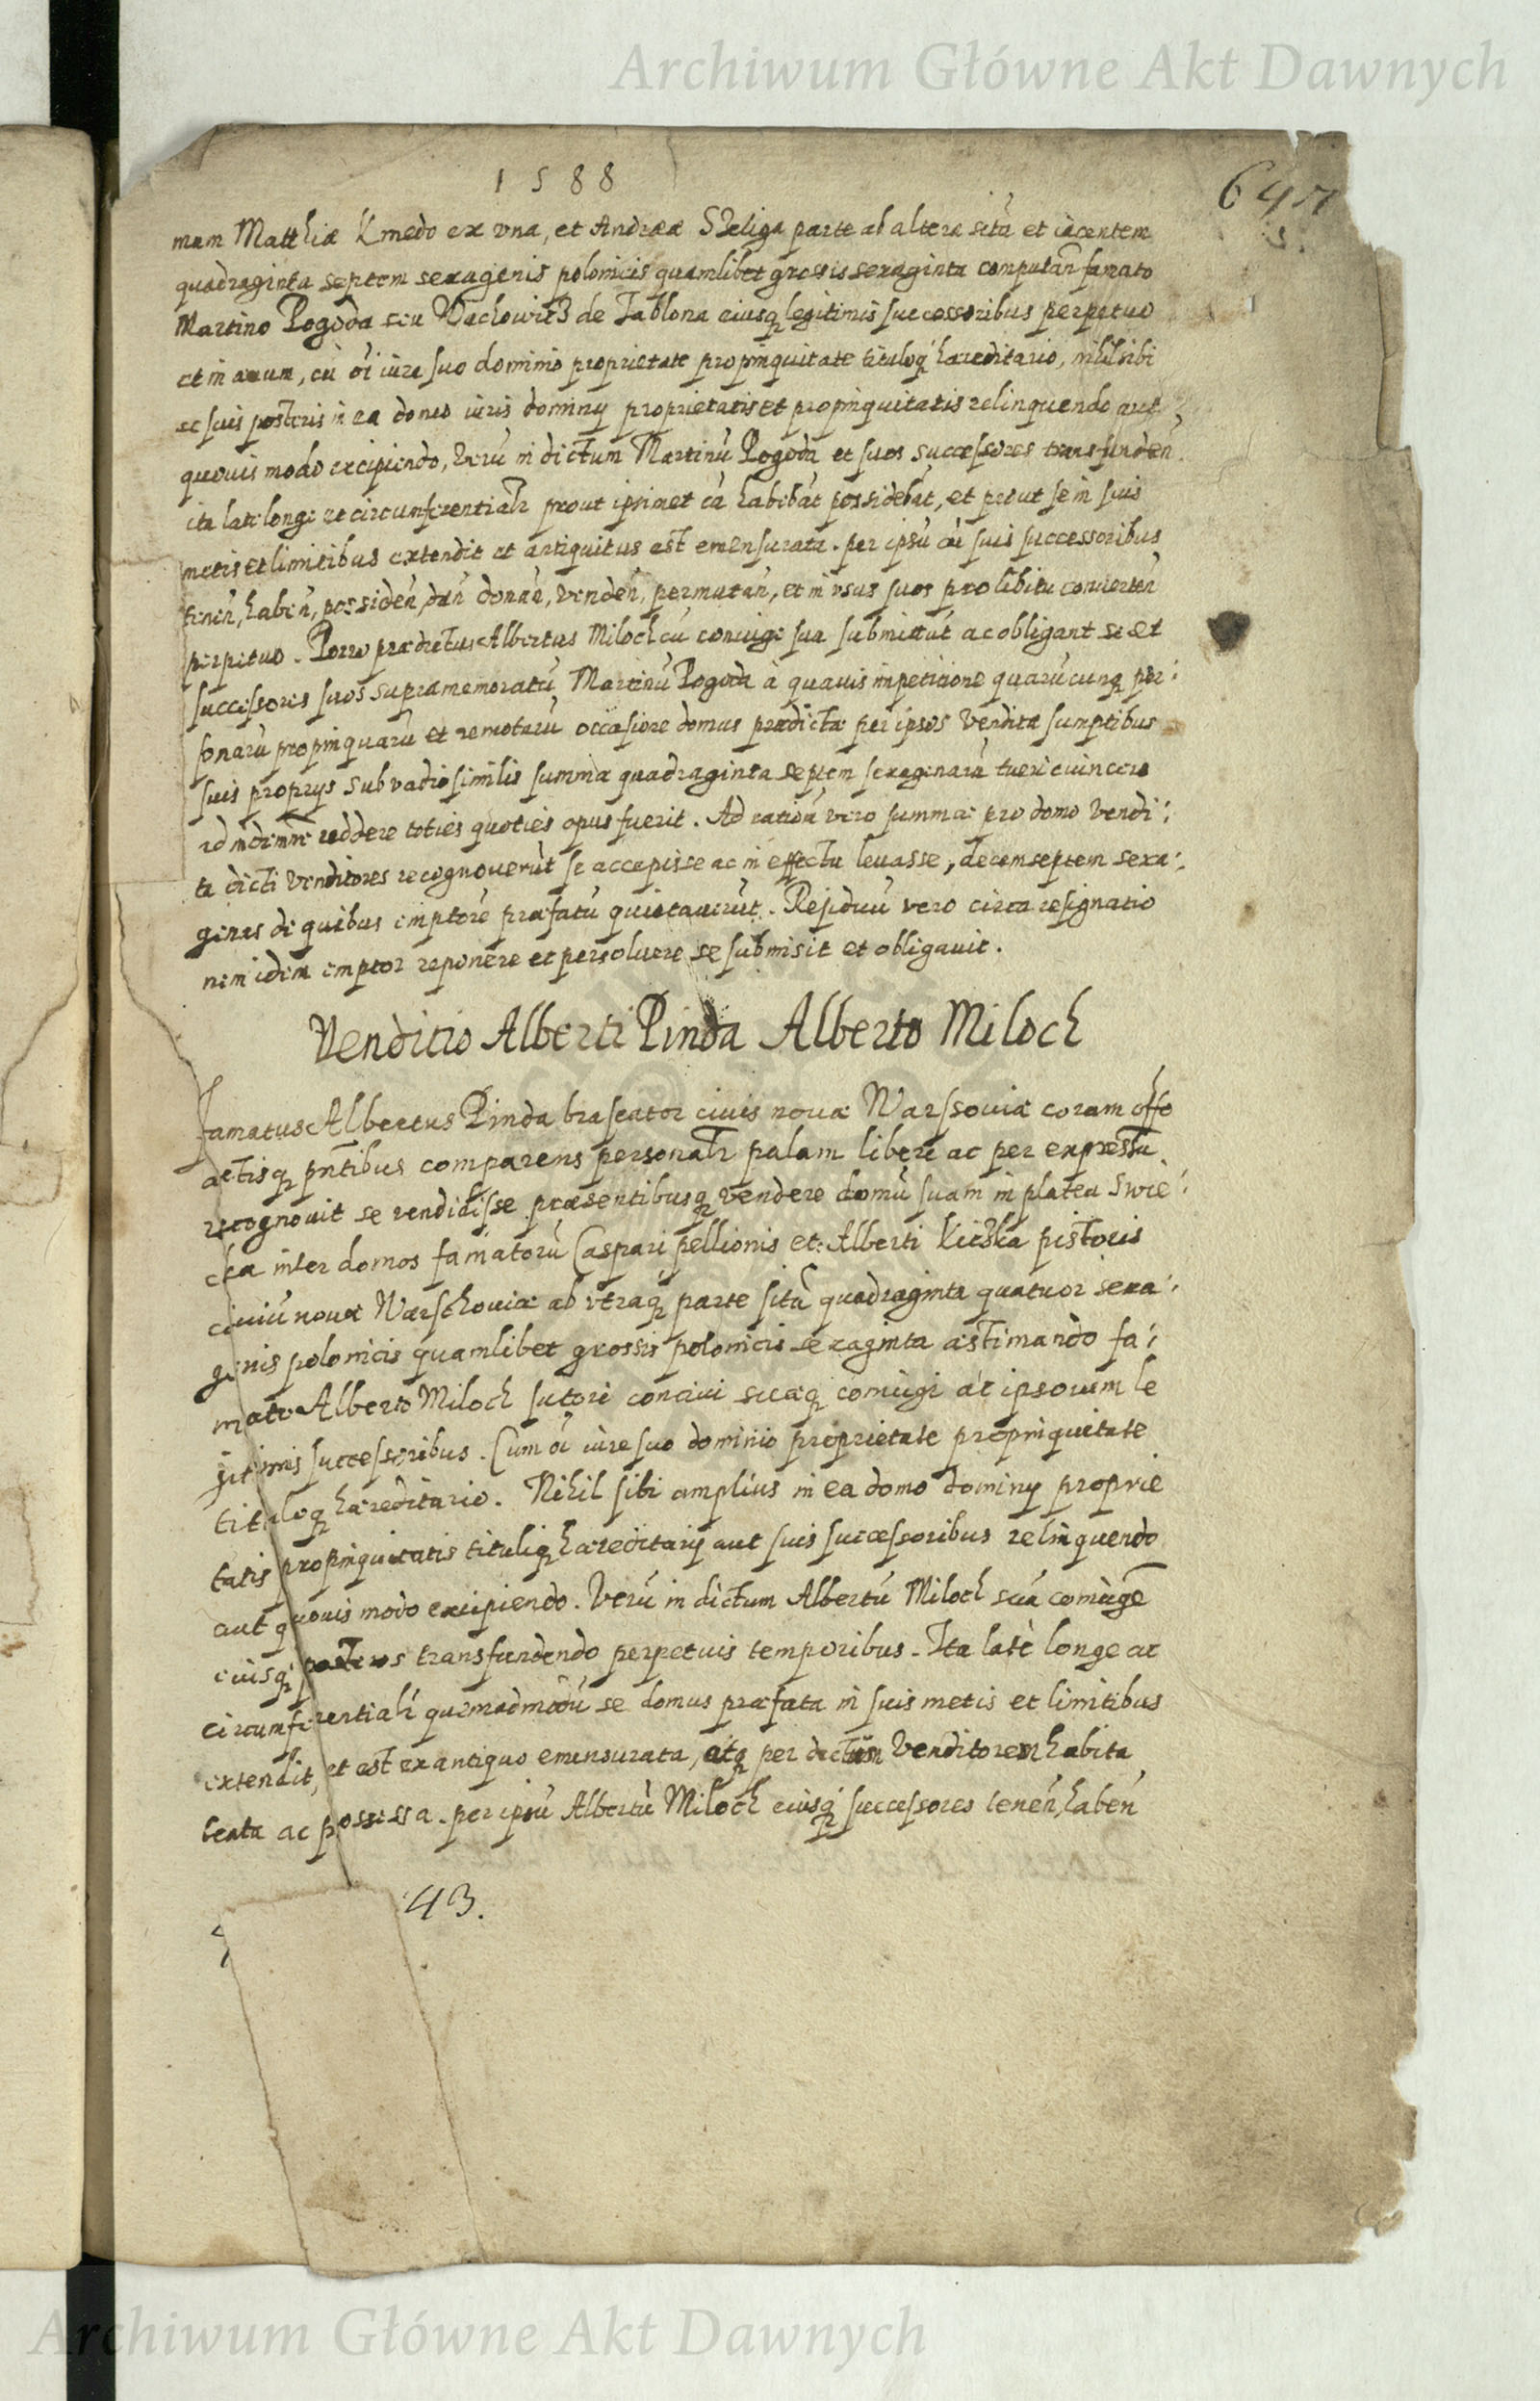 Archiwum Główne Akt Dawnych
1588
647
5.
mum Matthiæ Kmedo ex vna, et Andreæ Szeliga parte ab altera sitū et iacentem
quadraginta septem sexagenis polonicis quamlibet grossis sexaginta computan̄ famato
Martino Pogoda seu Wachowicz de Jablona eiusq legitimis successoribus perpetuo
et in æuum, cū oī iure suo dominio proprietate propinquitate tituloq hæreditario, nihil sibi
ac suis posteris in ea domo iuris dominÿ proprietatis et propinquitatis relinquendo aut
quouis modo excipiendo, Verū in dictum Martinū Pogoda et suos successores transfunden̄
ita late longe et circumferentialr prout ipsimet eā habebāt possidebāt, et prout se in suis
metis et limitibus extendit et antiquitus est emensurata. per ipsū cū suis successoribus
tenen̄, haben̄, possiden̄, dan̄ donan̄, venden̄, permutan̄, et in vsus suos pro libitu conuerten̄
perpetuo. Porro prædictus Albertus Miloch cū coniuge sua submittūt ac obligant se et
successores suos supramemoratū Martinū Pogoda à quauis impetitione quarūcunq per:
sonarū propinquarū et remotarū occasione domus prædictæ per ipsos Venditæ sumptibus
suis proprÿs sub vadio similis summæ quadraginta septem sexagenarū tueri euincere
et indemnē reddere toties quoties opus fuerit. Ad rationē vero summæ pro domo Vendi:
ta dicti Venditores recognouerūt se accepisse ac in effectu leuasse, decem septem sexa:
genas de quibus emptorē præfatū quietauerūt. Residuū vero circa resignatio
nem idem emptor reponere et persoluere se submisit et obligauit.
Venditio Alberti Pinda Alberto Miloch
Famatus Albertus Pinda braseator ciuis nouæ Warssouiæ coram offo
actisq pn̄tibus comparens personalr palam libere ac per expressū
recognouit se vendidisse præsentibusq vendere domū suam in platea Swie:
cka inter domos famatorū Caspari pellionis et Alberti Kiczka pistoris
ciuiū nouæ Warschouiæ ab vtraq parte sitā quadraginta quatuor sexa:
genis polonicis quamlibet grossis polonicis sexaginta æstimando fa:
mato Alberto Miloch sutori conciui suæq coniugi ac ipsorum le
gitimis successoribus. Cum oī iure suo dominio proprietate propinquitate
tituloq hæreditario. Nihil sibi amplius in ea domo dominÿ proprie
tatis propinquitatis tituliq hæreditarÿ aut suis successoribus relinquendo
aut quouis modo excipiendo. Verū in dictum Albertū Miloch suā coniugē
eiusq posteros transfundendo perpetuis temporibus. Ita latè longe ac
circumferentialr quemadmodū se domus præfata in suis metis et limitibus
extendit, et est ex antiquo emensurata, atq per dictum Venditorem habita
tenta ac possessa. per ipsū Albertū Miloch eiusq successores tenen̄, haben̄
43.
Archiwum Główne Akt Dawnych